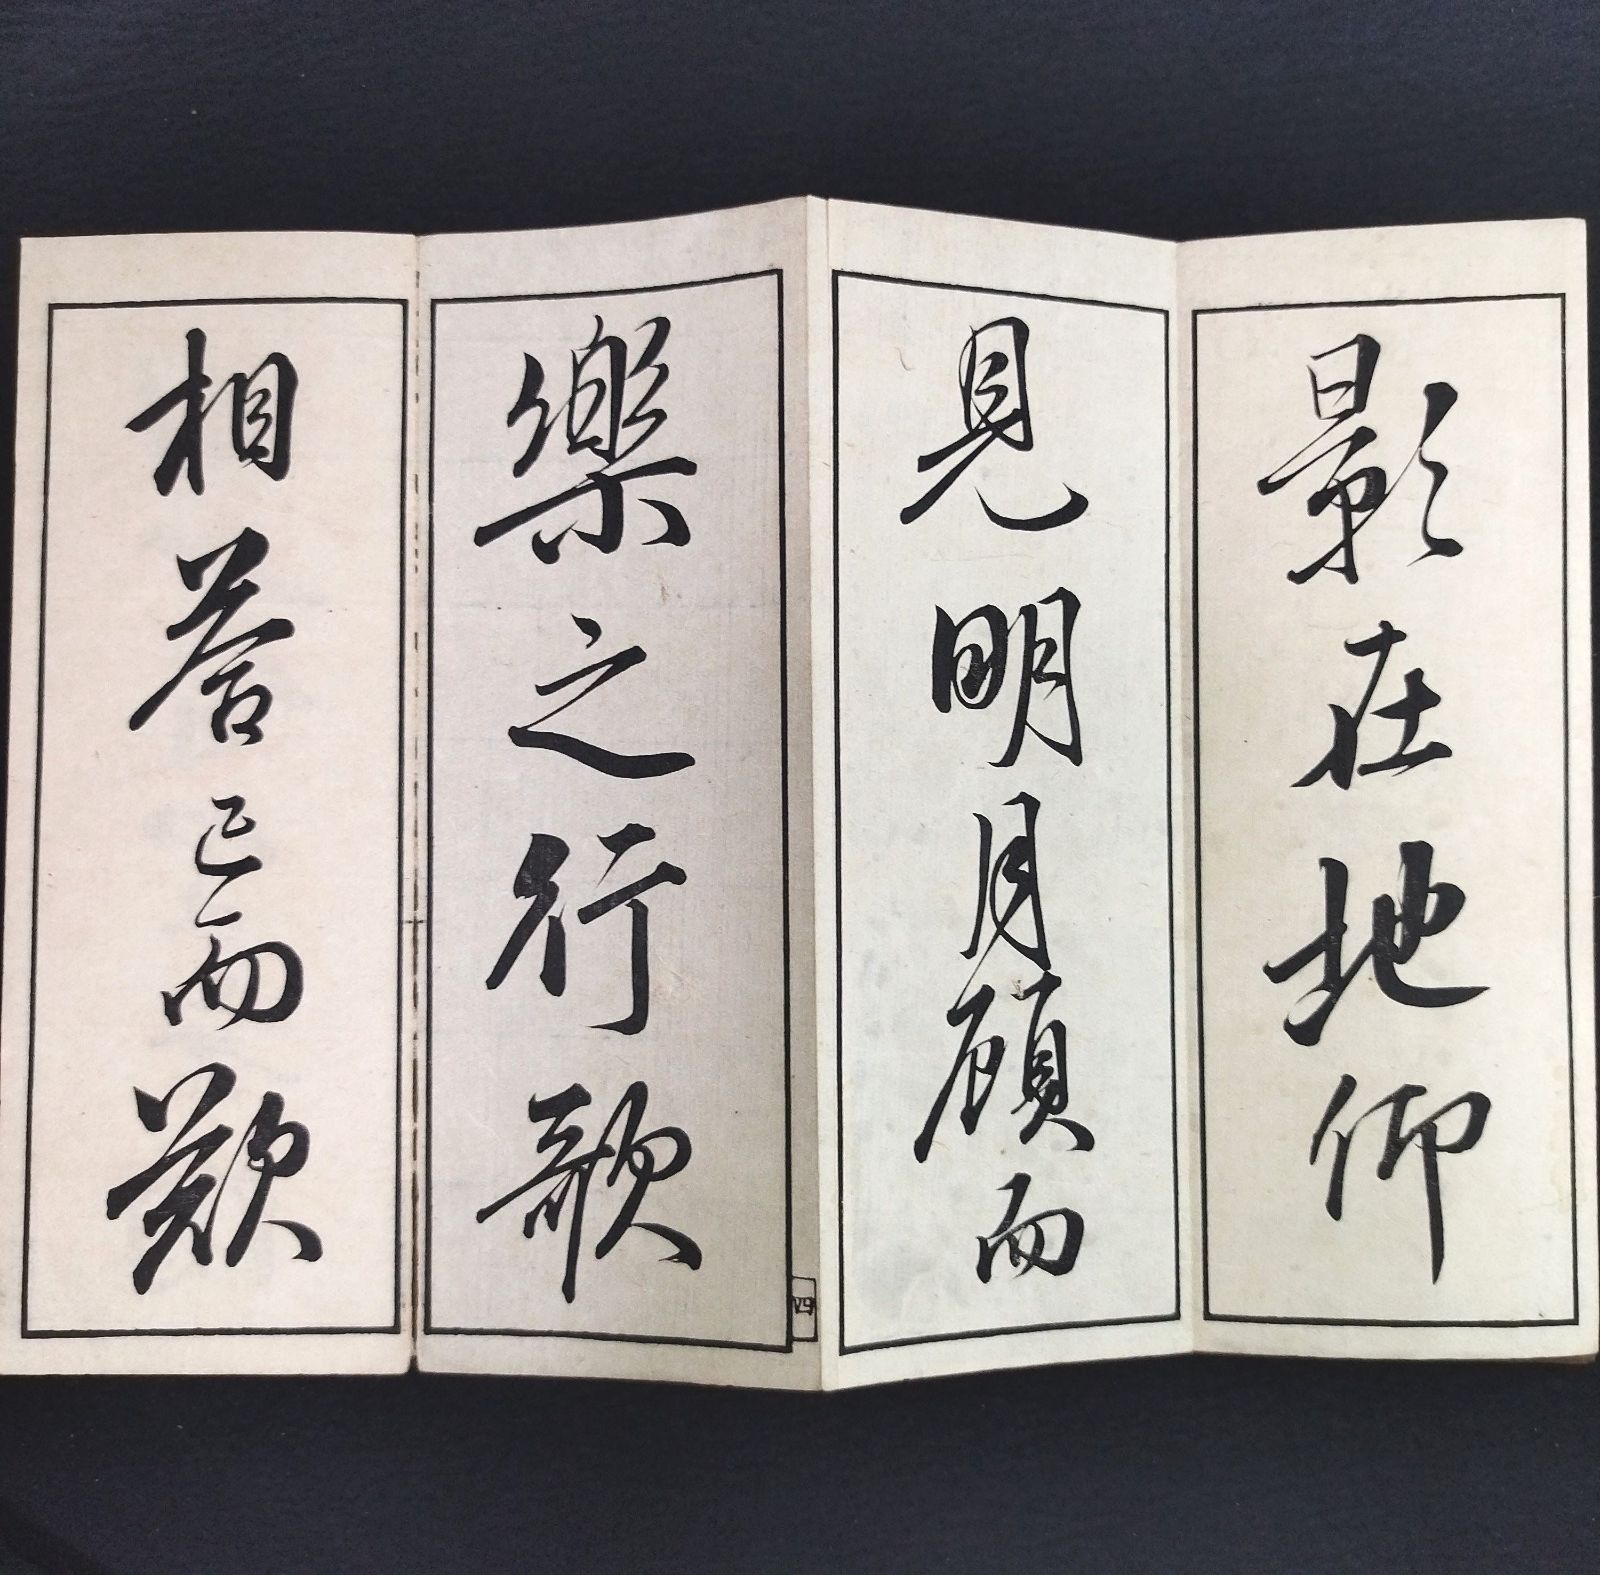 影在地仰
見明月顧而
樂之行歌
相答已而歎